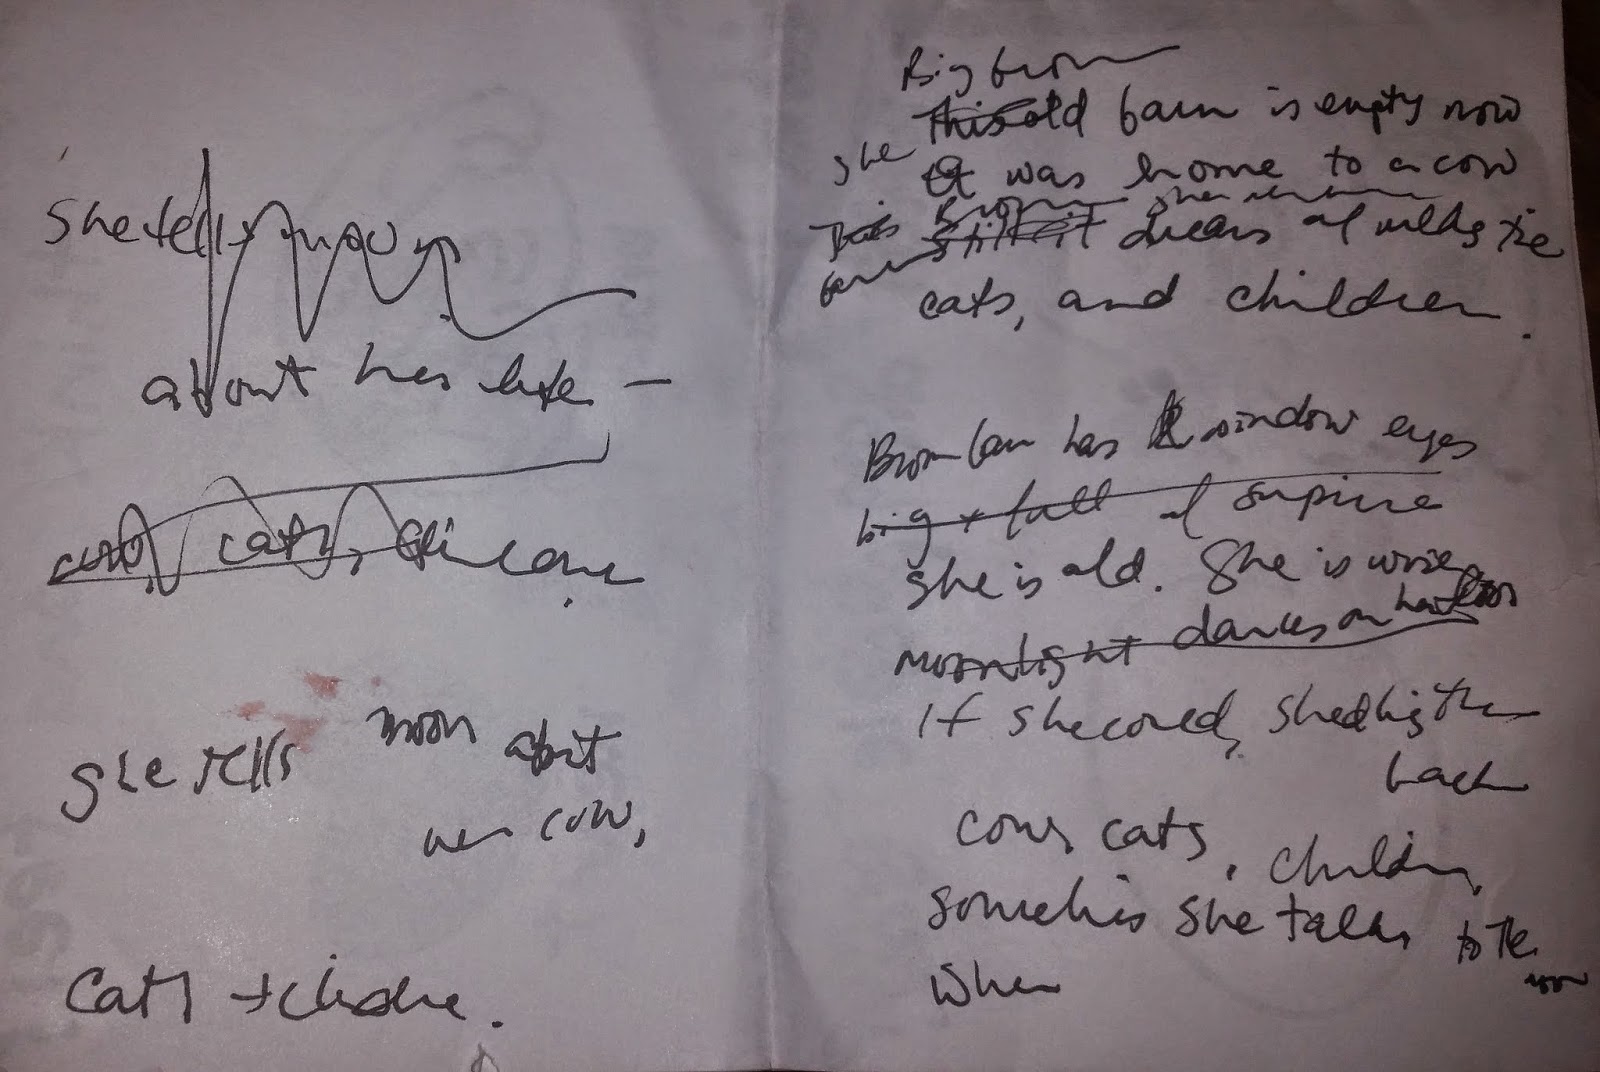 She tells moon
about her life —
cow, cats,
She tells moon about
her cow,
cats +
Big brown
This old barn is empty now
She It was home to a cow
This Brown she
barn still dreams of
cats, and children.
Brown barn has window eyes
big + full of surprise
She is old. She is wise
moonlight dances on her
If she could, she'd bring them
back
cows, cats, children,
Sometimes she talks to the
moon
When